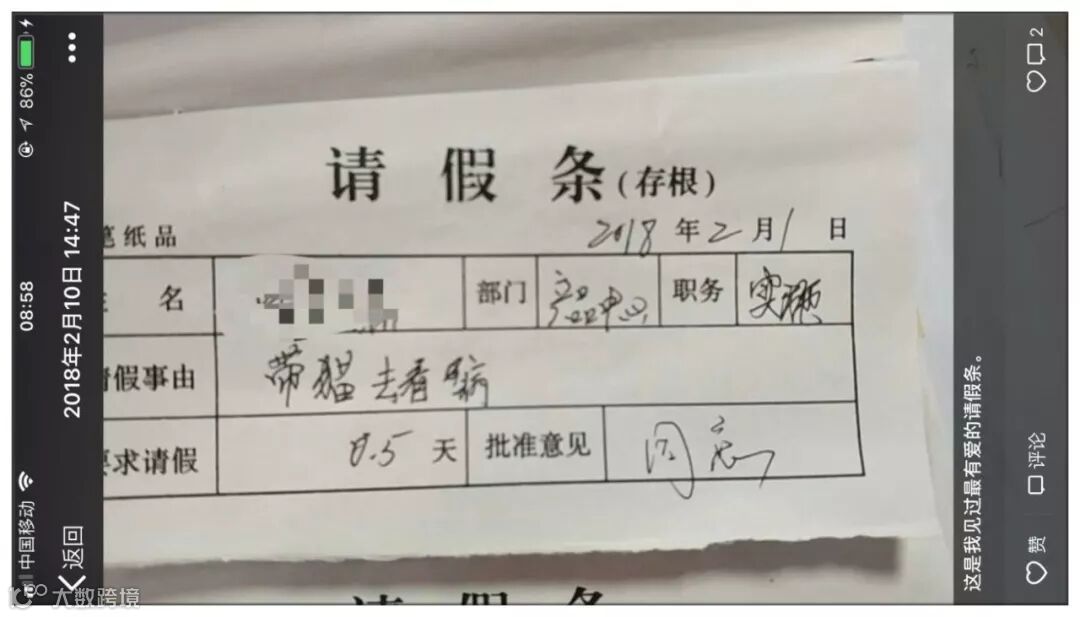 中国移动
08:58
86%
返回
2018年2月10日 14:47
请假条(存根)
笔纸品
2018年2月1日
名
部门 产品中心 职务 实习
请假事由 带猫去看病
要求请假 0.5天 批准意见 同意
请假条
这是我见过最有爱的请假条。
赞
评论
2
大数跨境